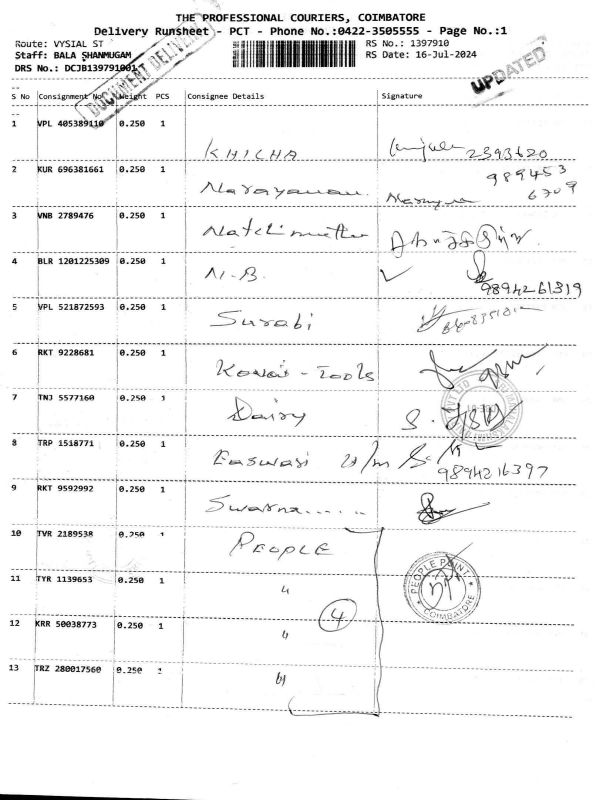 THE PROFESSIONAL COURIERS, COIMBATORE
Delivery Runsheet - PCT - Phone No.:0422-3505555 - Page No.:1
Route: VYSIAL ST RS No.: 1397910
Staff: BALA SHANMUGAM RS Date: 16-Jul-2024
DRS No.: DCJB139791001
DOCUMENT DELIVERY
UPDATED
S No Consignment No Weight PCS Consignee Details Signature
1 VPL 405389110 0.250 1 KHICHA 2393620
2 KUR 696381661 0.250 1 Narayanan 989453
6709
3 VNB 2789476 0.250 1 Natchimuthu
4 BLR 1201225309 0.250 1 N.B. ✓
9894261319
5 VPL 521872593 0.250 1 Surabi
6 RKT 9228681 0.250 1 Kovai - Tools
7 TNJ 5577160 0.250 1 Dairy
8 TRP 1518771 0.250 1 Easwari
9894216397
9 RKT 9592992 0.250 1 Swarna......
10 TVR 2189538 0.250 1 PEOPLE
PEOPLE POINT
COIMBATORE
11 TYR 1139653 0.250 1 "
4
12 KRR 50038773 0.250 1 "
13 TRZ 280017560 0.250 1 "